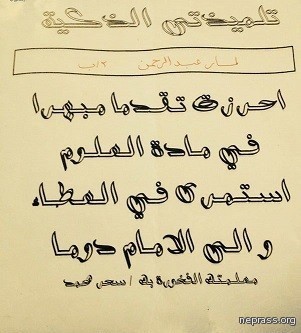 تلميذتي الذكية
تمارا عبد الرحمن ٣/ب
احرزت تقدما مبهرا
في مادة العلوم
استمري في العطاء
والى الامام دوما
معلمتك الفخورة بك / سحر محمد
neprass.org